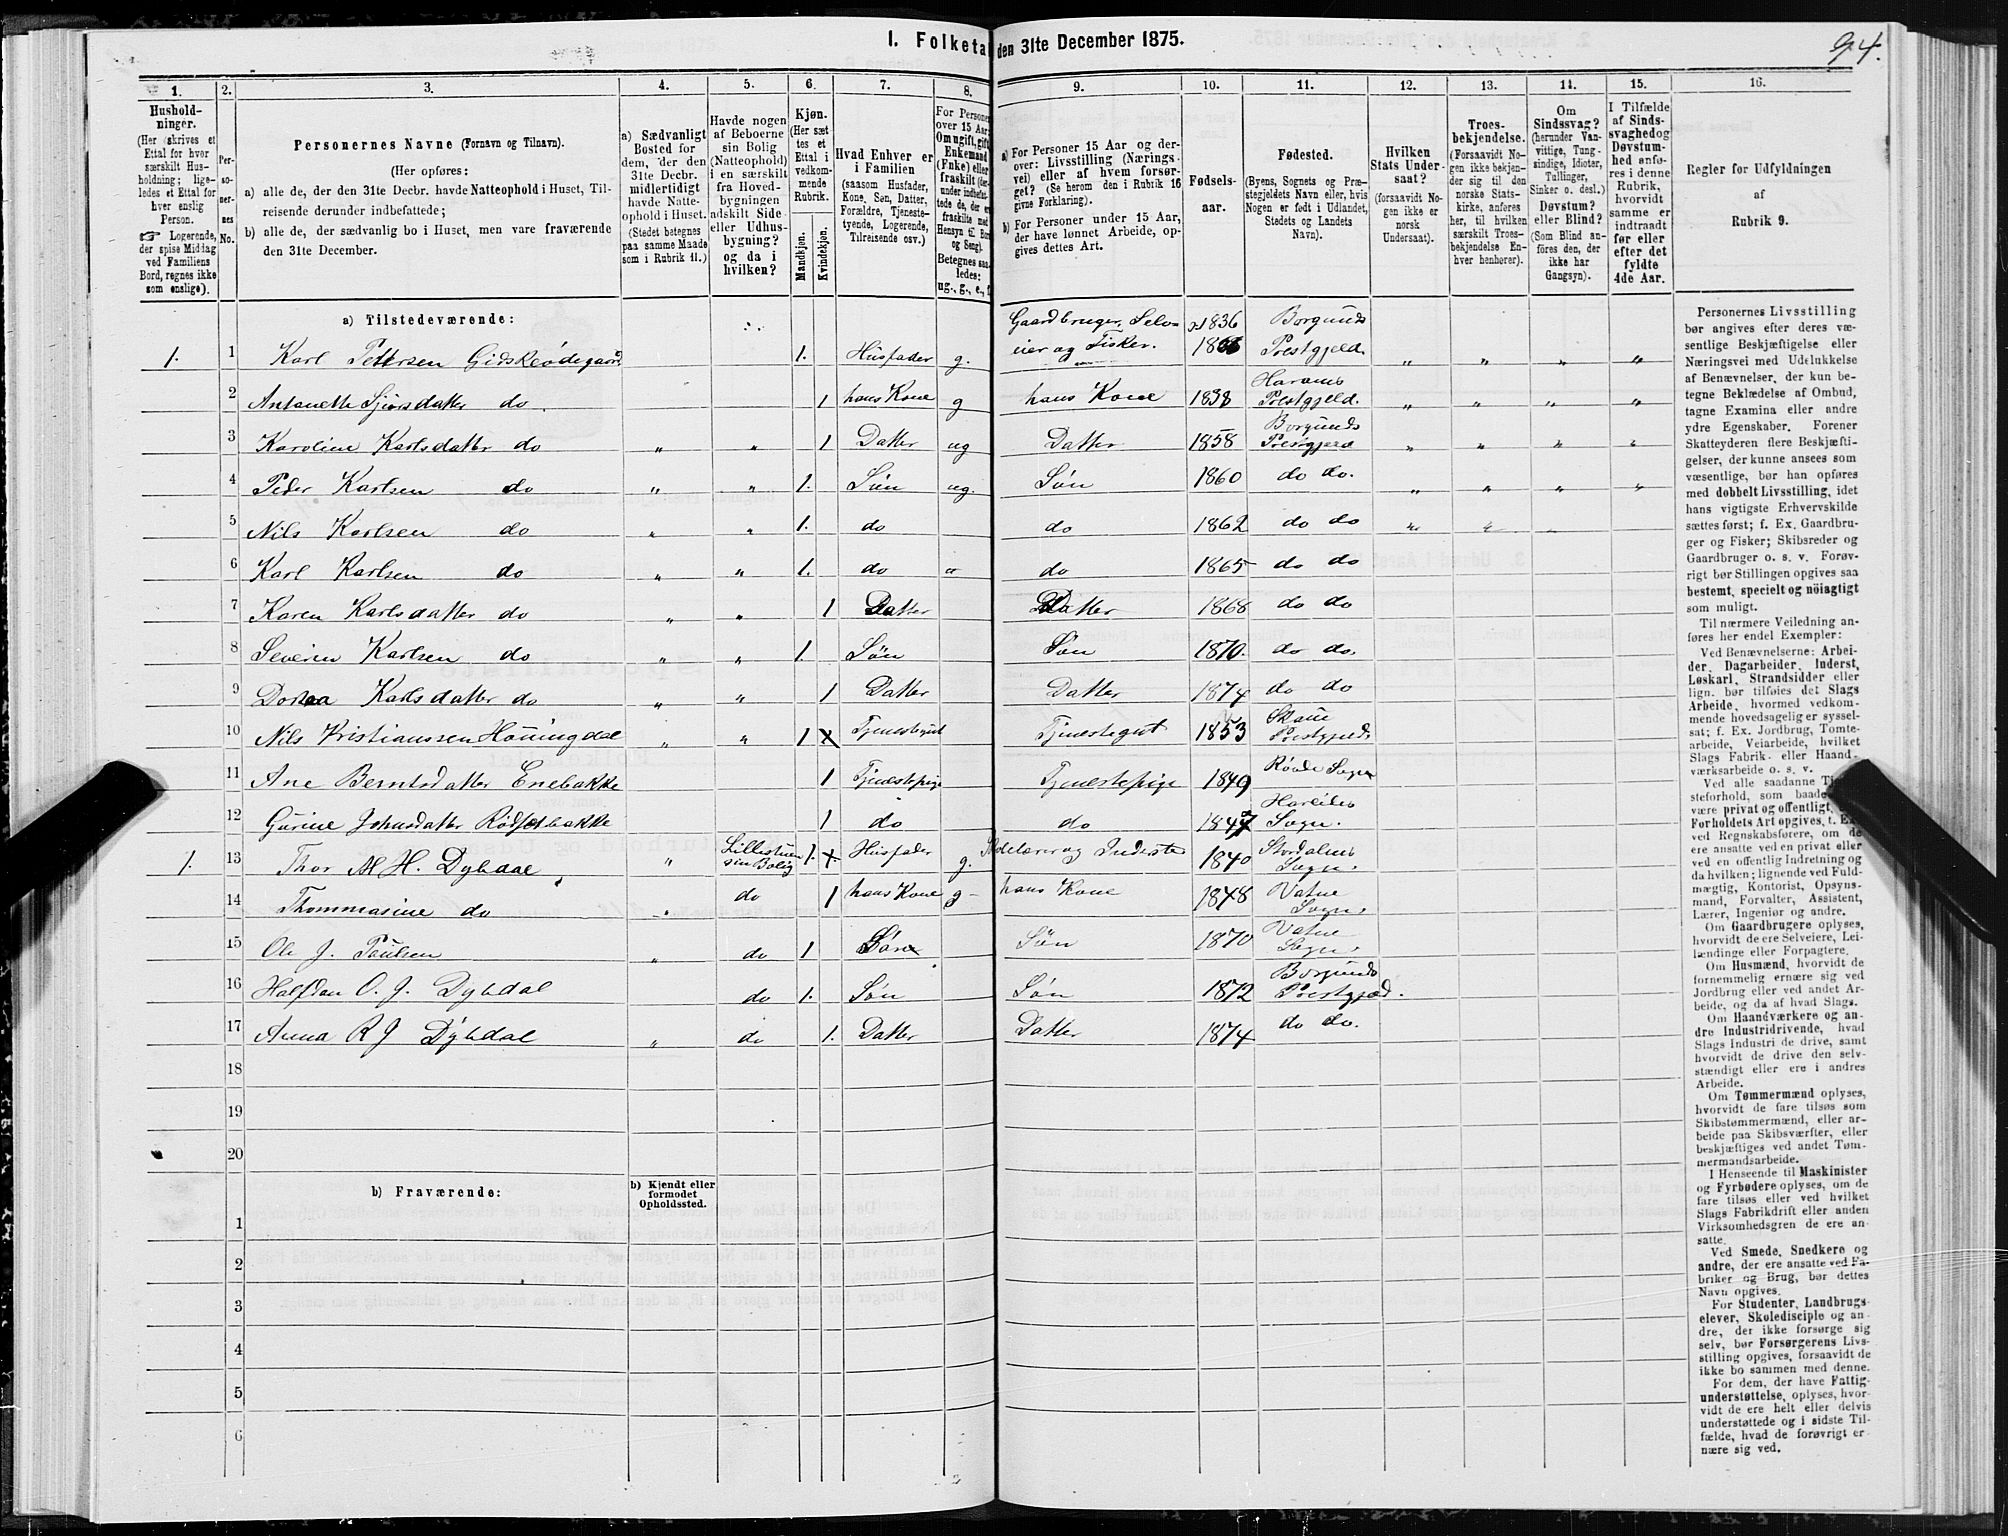 1. Folketal den 31te December 1875.
94.
1. 2. 3. 4. 5. 6. 7. 8. 9. 10. 11. 12. 13. 14. 15. 16.
Hushold-
ninger.
(Her skrives et
Ettal for hver
særskilt Hus-
holdning; lige-
ledes et Ettal for
hver enslig
Person.
Logerende,
der spise Middag
ved Familiens
Bord, regnes ikke
som enslige).
Per-
so-
ner-
nes
No.
Personernes Navne (Fornavn og Tilnavn).
(Her opføres:
a) alle de, der den 31te Decbr. havde Natteophold i Huset, Til-
reisende derunder indbefattede;
b) alle de, der sædvanlig bo i Huset, men vare fraværende
den 31te December.
a) Sædvanligt
Bosted for
dem, der den
31te Decbr.
midlertidigt
havde Natte-
ophold i Huset.
(Stedet betegnes
paa samme Maade
som i Rubrik 11.)
Havde nogen
af Beboerne
sin Bolig
(Natteophold)
i en særskilt
fra Hoved-
bygningen
adskilt Side-
eller Udhus-
bygning?
og da i
hvilken?
Kjøn.
(Her sæt-
tes et
Ettal i
vedkom-
mende
Rubrik.
Mandkjøn.
Kvindekjøn.
Hvad Enhver er
i Familien
(saasom Husfader,
Kone, Søn, Datter,
Forældre, Tjeneste-
tyende, Logerende,
Tilreisende osv.)
For Personer
over 15 Aar:
Om ugift, gift,
Enkemand
(Enke) eller
fraskilt
Betegnes saa-
ledes:
ug., g., e., f.
a) For Personer 15 Aar og der-
over: Livsstilling (Nærings-
vei) eller af hvem forsør-
get? (Se herom den i Rubrik 16
givne Forklaring).
b) For Personer under 15 Aar,
der have lønnet Arbeide, op-
gives dettes Art.
Fødsels-
aar.
Fødested.
(Byens, Sognets og Præ-
stegjeldets Navn eller, hvis
Nogen er født i Udlandet,
Stedets og Landets
Navn).
Hvilken
Stats Under-
saat?
(forsaavidt No-
gen ikke er
norsk
Undersaat).
Troes-
bekjendelse.
(Forsaavidt No-
gen ikke bekjen-
der sig til den
norske Stats-
kirke, anføres
her, til hvilken
særskilt Troes-
bekjendelse En-
hver henhører).
Om
Sindssvag?
(herunder Van-
vittige, Tung-
sindige, Idioter,
Tullinger,
Sinker o. desl.)
Døvstum?
eller Blind?
(Som Blind an-
føres den, der
ikke har
Gangsyn).
I Tilfælde
af Sinds-
svaghed og
Døvstum-
hed anfø-
res i denne
Rubrik,
hvorvidt
samme er
indtraadt
før eller
efter det
fyldte
4de Aar.
Regler for Udfyldningen
af
Rubrik 9.
a) Tilstedeværende:
1. 1 Karl Pettersen Gidskeødegaard 1. Husfader g. Gaardbruger, Selv- eier og Fisker. 1836 Borgunds Prestgjeld. „ „ „ „
2 Antonette Sjursdatter do 1 hans Kone g hans Kone 1838 Harams Prestgjeld. „ „ „ „
3 Karoline Karlsdatter do „ „ 1 Datter ug Datter 1858 Borgunds Prestgjeld „ „ „ „
4 Peder Karlsen do „ „ 1. Søn ug. Søn 1860 do do. „ „ „ „
5 Nils Karlsen do „ „ 1. do do 1862 do do „ „ „
6 Karl Karlsen do „ „ 1. do „ do 1865 do do
7 Karen Karlsdatter do „ „ 1 Datter Datter 1868 do do
8 Severin Karlsen do „ „ 1. Søn Søn 1870. do do.
9 Dortea Karlsdatter do „ „ 1 Datter Datter 1874 do do
10 Nils Kristianssen Horningdal „ „ 1 Tjenestegut Tjenestegut 1853 Prestgjeld.
11 Ane Berntsdatter Enebakke 1 Tjenestepige Tjenestepige 1849 Sogn
12 Gurine Johnsdatter Rødsetbakke 1 do do Sogn.
1. 13 Thor M H. Dybdal „ Lillestuen sin Bolig 1. Husfader g. 1840 Stordalens Sogn.
14 Thommasine do „ do 1 hans Kone g hans Kone 1848 Vatne Sogn.
15 Ole J. Paulsen „ do 1 Søn Søn 1870 Vatne Sogn.
16 Halfdan O. J. Dybdal do 1. Søn Søn 1872 Borgunds Prestgjeld.
17 Anna R J Dybdal „ do 1. Datter Datter 1874 do do.
18
19
20
b) Fraværende:
b) Kjendt eller
formodet
Opholdssted.
1
2
3
4
5
6
Personernes Livsstilling
bør angives efter deres væ-
sentlige Beskjæftigelse eller
Næringsvei med Udelukkelse
af Benævnelser, der kun be-
tegne Beklædelse af Ombud,
tagne Examina eller andre
ydre Egenskaber. Forener
Skatteyderen flere Beskjæfti-
gelser, der kunne ansees som
væsentlige, bør han opføres
med dobbelt Livsstilling, idet
hans vigtigste Erhvervskilde
sættes først; f. Ex. Gaardbru-
ger og Fisker; Skibsreder og
Gaardbruger o. s. v. Forøv-
rigt bør Stillingen opgives saa
bestemt, specielt og nöiagtigt
som muligt.
Til nærmere Veiledning an-
føres her endel Exempler:
Ved Benævnelserne: Arbei-
der, Dagarbeider, Inderst,
Løskarl, Strandsidder eller
lign. bør tilføies det Slags
Arbeide, hvormed vedkom-
mende hovedsagelig er syssel-
sat; f. Ex. Jordbrug, Tomte-
arbeide, Veiarbeide, hvilket
Slags Fabrik- eller Haand-
værksarbeide o. s. v.
Ved alle saadanne
steforhold, som baade
være privat og offentligt,
Forholdets Art opgives, t. Ex.
ved Regnskabsførere, om de
ere ansatte ved en privat eller
ved en offentlig Indretning og
da hvilken; lignende ved Fuld-
mægtig, Kontorist, Opsyns-
mand, Forvalter, Assistent,
Lærer, Ingeniør og andre.
Om Gaardbrugere oplyses,
hvorvidt de ere Selveiere, Lei-
lændinge eller Forpagtere.
Om Husmænd, hvorvidt de
fornemmelig ernære sig ved
Jordbrug eller ved andet Ar-
beide, og da af hvad Slags.
Om Haandværkere og an-
dre Industridrivende, hvad
Slags Industri de drive, samt
hvorvidt de drive den selv-
stændigt eller ere i andres
Arbeide.
Om Tømmermænd oplyses,
hvorvidt de fare tilsøs som
Skibstømmermænd, eller ar-
beide paa Skibsværfter, eller
beskjæftiges ved andet Tøm-
mermandsarbeide.
I Henseende til Maskinister
og Fyrbødere oplyses, om de
fare tilsøs eller ved hvilket
Slags Fabrikdrift eller anden
Virksomhedsgren de ere an-
satte.
Ved Smede, Snedkere og
andre, der ere ansatte ved Fa-
briker og Brug, bør dettes
Navn opgives.
For Studenter, Landbrugs-
elever, Skoledisciple og an-
dre, der ikke forsørge sig
selv, bør Forsørgerens Livs-
stilling opgives, forsaavidt de
ikke bo sammen med denne.
For dem, der have Fattig-
understøttelse, oplyses, hvor-
vidt de ere helt eller delvis
understøttede og i sidste Til-
fælde, hvad de forøvrigt er-
nære sig ved.